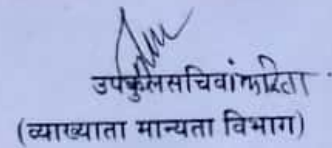 उपकुलसचिवांकरिता
(व्याख्याता मान्यता विभाग)